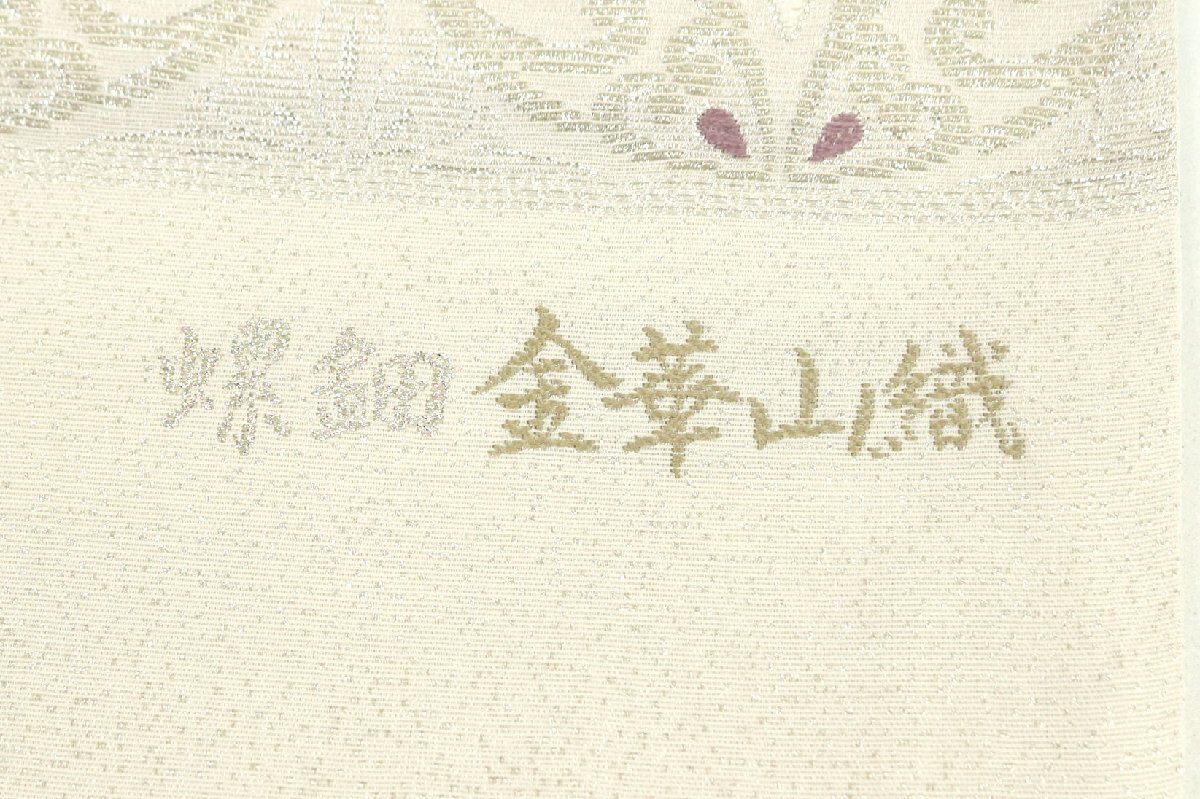 螺鈿 金華山織